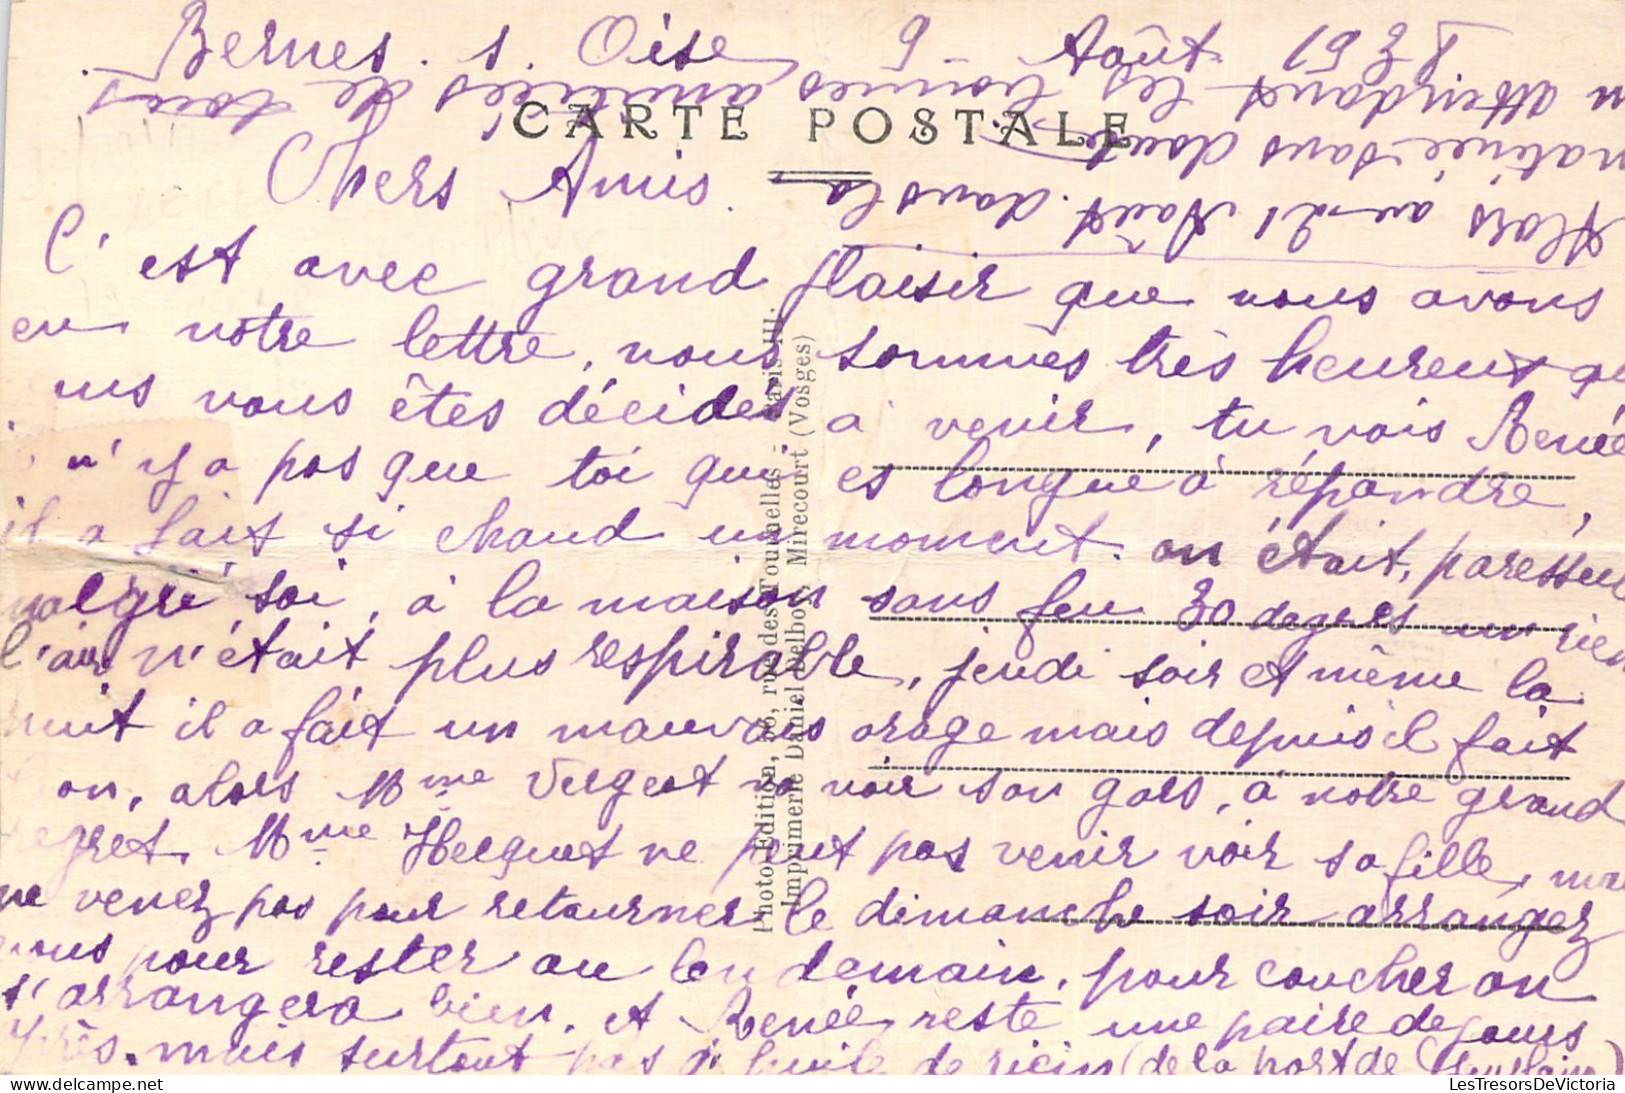 Bernes. s. Oise 9 Août 1951
CARTE POSTALE
Chers Amis.
C'est avec grand plaisir que nous avons
eu votre lettre, nous sommes très heureux
vous êtes décidés à venir, tu vois Renée
n'y a pas que toi qui es longue à répondre,
il a fait si chaud un moment. on était, paresseux
malgré soi, à la maison sans feu 30 degrés un rien
l'air n'était plus respirable, jeudi soir et même la
nuit il a fait un mauvais orage mais depuis il fait
on, alors Mme va voir son gars, à notre grand
regret. Mme ne peut pas venir voir sa fille,
ne venez pas pour retourner le dimanche soir arrangez
vous pour rester au lendemain, pour coucher on
s'arrangera bien. et Renée reste une paire de jours
après. mais surtout pas d'huile de ricin (de la part de
Alors au 21 Août. dans la
matinée sans doute
en attendant les bonnes amitiés de tous
Photo-Edition, rue des Tournelles - Paris-III.
Imprimerie Daniel Delboy, Mirecourt (Vosges)
LesTresorsDeVictoria